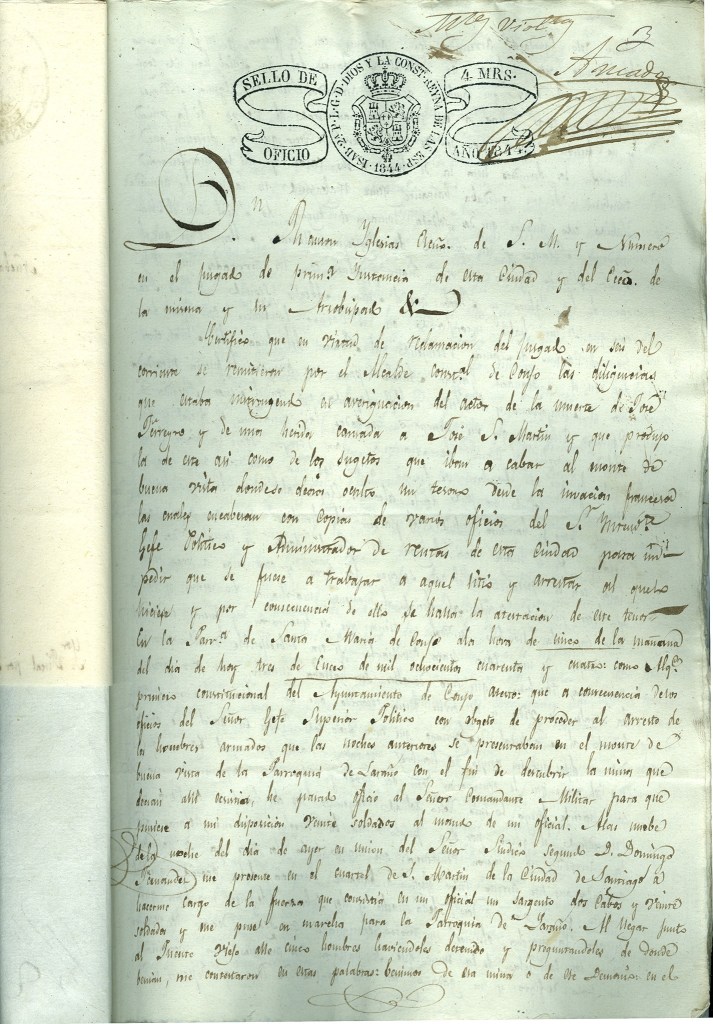 3
SELLO DE
OFICIO
ISAB. 2ª P. L. G. D. DIOS Y LA CONST. REYNA DE LAS ESP.
1844
4. MRS.
AÑO 1844.
Dn. Ramon Yglesias Escno. de S. M. y Numero
en el juzgado de primª Instancia de esta Ciudad y del de
la misma y su Arzobispado &
Certifico que en virtud de reclamacion del juzgado en seis del
corriente se remitieron por el Alcalde constl de Conjo las diligencias
que estaba instruyendo en averiguacion del actor de la muerte de José
Ferreyro y de una herida causada a José S. Martin y que produjo
la de este asi como de los sugetos que iban a cabar al monte de
buena vista donde se decia oculto un tesoro desde la invacion francesa
las cuales encabezan con copias de varios oficios del Sr.
Gefe Politico y Administrador de rentas de esta Ciudad para im
pedir que se fuese a trabajar a aquel sitio y arrestar al que lo
hiciese y por consecuencia de ello se halla la de este tenor
En la Parrª de Santa Maria de Conjo a la hora de cinco de la mañana
del dia de hoy tres de Enero de mil ochocientos cuarenta y cuatro: como
primero constitucional del Ayuntamiento de Conjo que a consecuencia de los
oficios del Señor Gefe Superior Politico con objeto de proceder al arresto de
los hombres armados que las noches anteriores se presentaban en el monte de
buena vista de la Parroquia de Laraño con el fin de descubrir la mina que
decian alli ecsistia, he pasado oficio al Señor Comandante Militar para que
pusiese a mi disposicion veinte soldados al mando de un oficial. A las nuebe
de la noche del dia de ayer en union del Señor Sindico segundo D. Domingo
Fernandez me presente en el cuartel de S. Martin de la Ciudad de Santiago a
hacerme cargo de la fuerza que consistia en un oficial un sargento dos Cabos y veinte
soldados y me puse en marcha para la Parroquia de Laraño. Al llegar junto
al Puente Viejo alle cinco hombres haviendoles detenido y preguntandoles de donde
benian, me contestaron en estas palabras: benimos de esa mina o de ese Demonio: en el